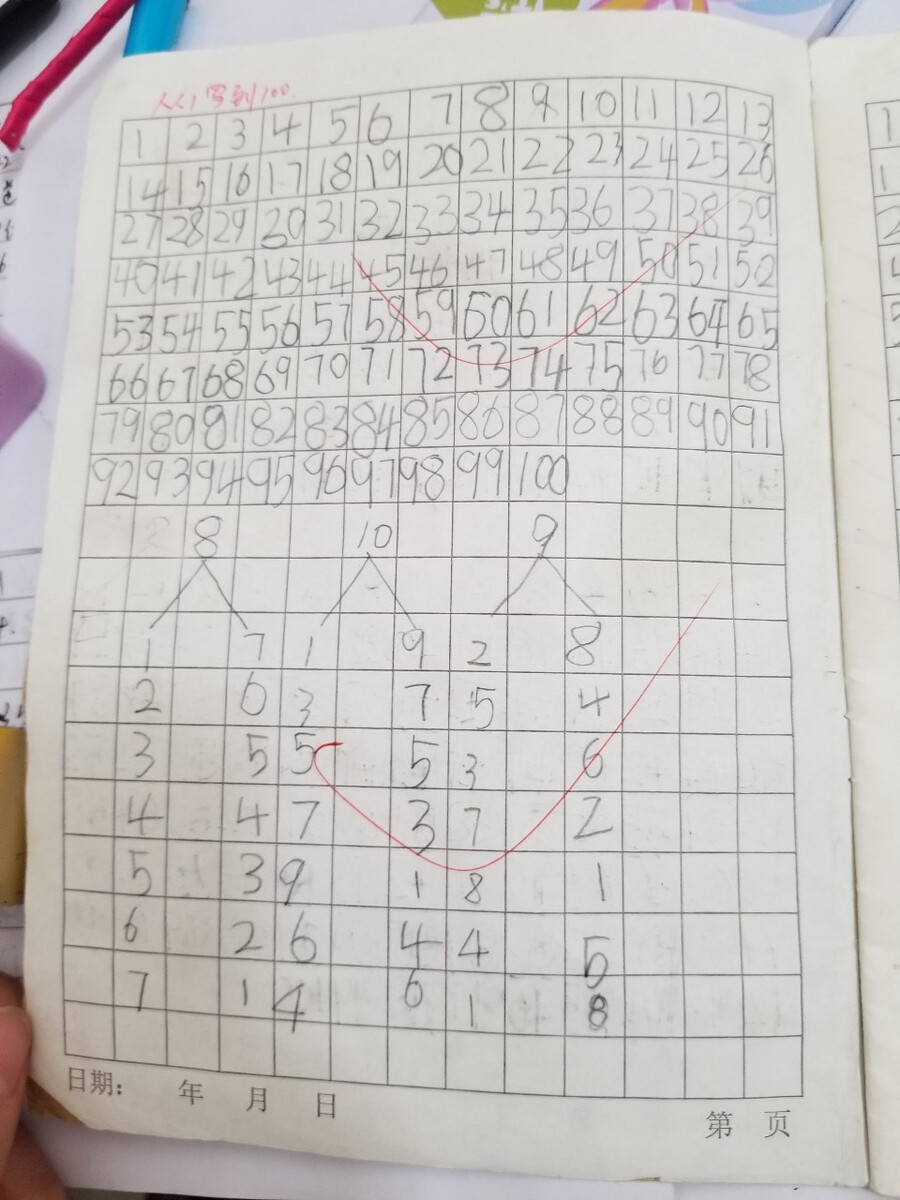 从1写到100.
1 2 3 4 5 6 7 8 9 10 11 12 13
14 15 16 17 18 19 20 21 22 23 24 25 26
27 28 29 30 31 32 33 34 35 36 37 38 39
40 41 42 43 44 45 46 47 48 49 50 51 50
53 54 55 56 57 58 59 60 61 62 63 64 65
66 67 68 69 70 71 72 73 74 75 76 77 78
79 80 81 82 83 84 85 86 87 88 89 90 91
92 93 94 95 96 97 98 99 100
8 10 9
1 7 1 9 2 8
2 6 3 7 5 4
3 5 5 5 3 6
4 4 7 3 7 2
5 3 9 1 8 1
6 2 6 4 4 5
7 1 4 6 1 8
日期: 年 月 日
第 页